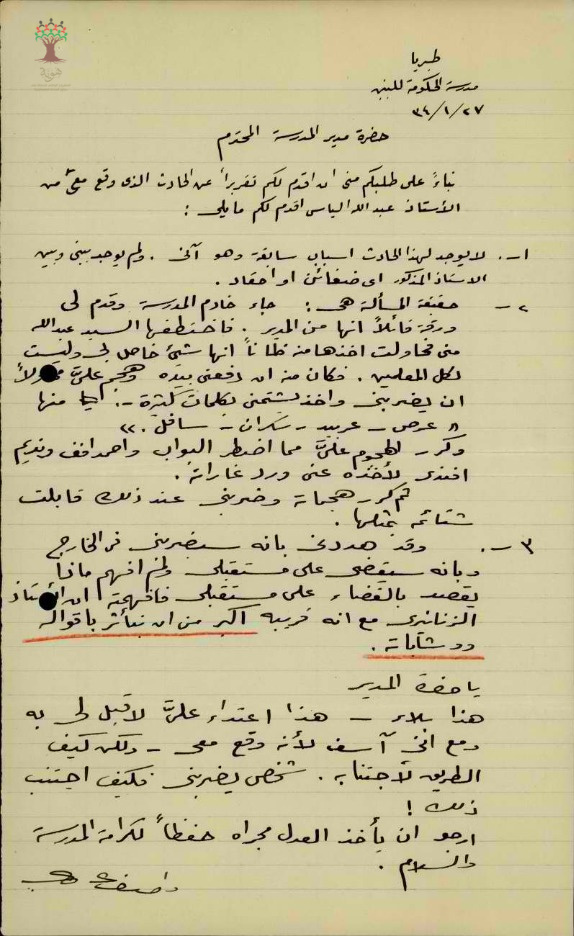 طبريا
مدرسة الحكومة للبنين
٣٤/١/٢٧
حضرة مدير المدرسة المحترم
بناءً على طلبكم مني ان اقدم لكم تقريراً عن الحادث الذي وقع معي من
الأستاذ عبد الله الياس اقدم لكم ما يلي :
١ـ. لا يوجد لهذا الحادث اسباب سابقة وهو آني . ولم يوجد بيني وبين
الاستاذ المذكور اي ضغائن او احقاد .
٢ـ حقيقة المسألة هي : جاء خادم المدرسة وقدم لي
ورقة قائلاً انها من المدير . فاختطفها السيد عبد الله
مني فحاولت اخذها منه ظاناً انها شيء خاص لي وليست
لكل المعلمين . فكان منه ان دفعني بيده وهجم عليّ
ان يضربني واخذ يشتمني بكلمات كثيرة ـ. منها
« عرص ـ عربيد ـ سكران ـ سافل . »
وكرر الهجوم عليّ مما اضطر البواب واحمد افندي ونديم
افندي لأخذه عني ورد غاراته .
ثم كرر هجماته وضربني عند ذلك قابلت
شتائمه بمثلها .
٣ـ. وقد هددني بانه سيضربني في الخارج
وبانه سيقضي على مستقبلي ولم افهم ماذا
يقصد بالقضاء على مستقبلي فافهمته ان الأستاذ
مع انه قريبه اكبر من ان يتأثر باقواله
ووشاياته .
يا حضرة المدير
هذا بلاء ـ هذا اعتداء عليّ لا قبل لي به
ومع اني آسف لأنه وقع معي ـ ولكن كيف
الطريق لأجتنابه . شخص يضربني فكيف اجتنب
ذلك !
ارجو ان يأخذ العدل مجراه حفظاً لكرامة المدرسة
والسلام .